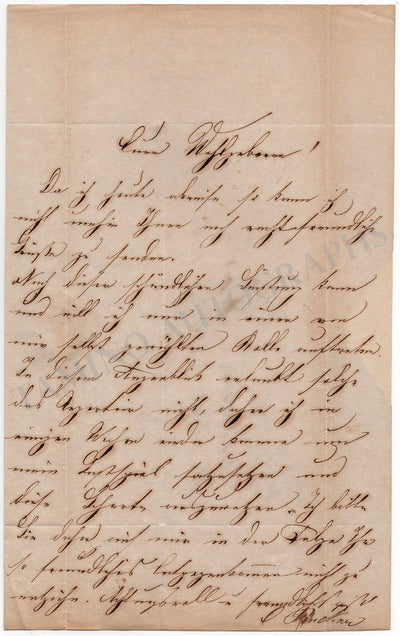 Euer Wohlgeboren!
Da ich heute abreise so kann ich
nicht umhin Ihnen noch recht freundliche
Grüße zu senden.
Nach dieser schändlichen kann
und will ich nur in einer von
mir selbst gewählten Rolle auftreten.
In diesem Augenblick erlaubt solche
das Repertoir nicht, daher ich in
einigen Wochen wieder komme um
mein Gastspiel fortzusetzen und
diese Scharte auszuwetzen. Ich bitte
Sie daher mir in der Folge Ihr
so freundliches nicht zu
entziehen. Achtungsvoll u freundlichst
TAMINO AUTOGRAPHS